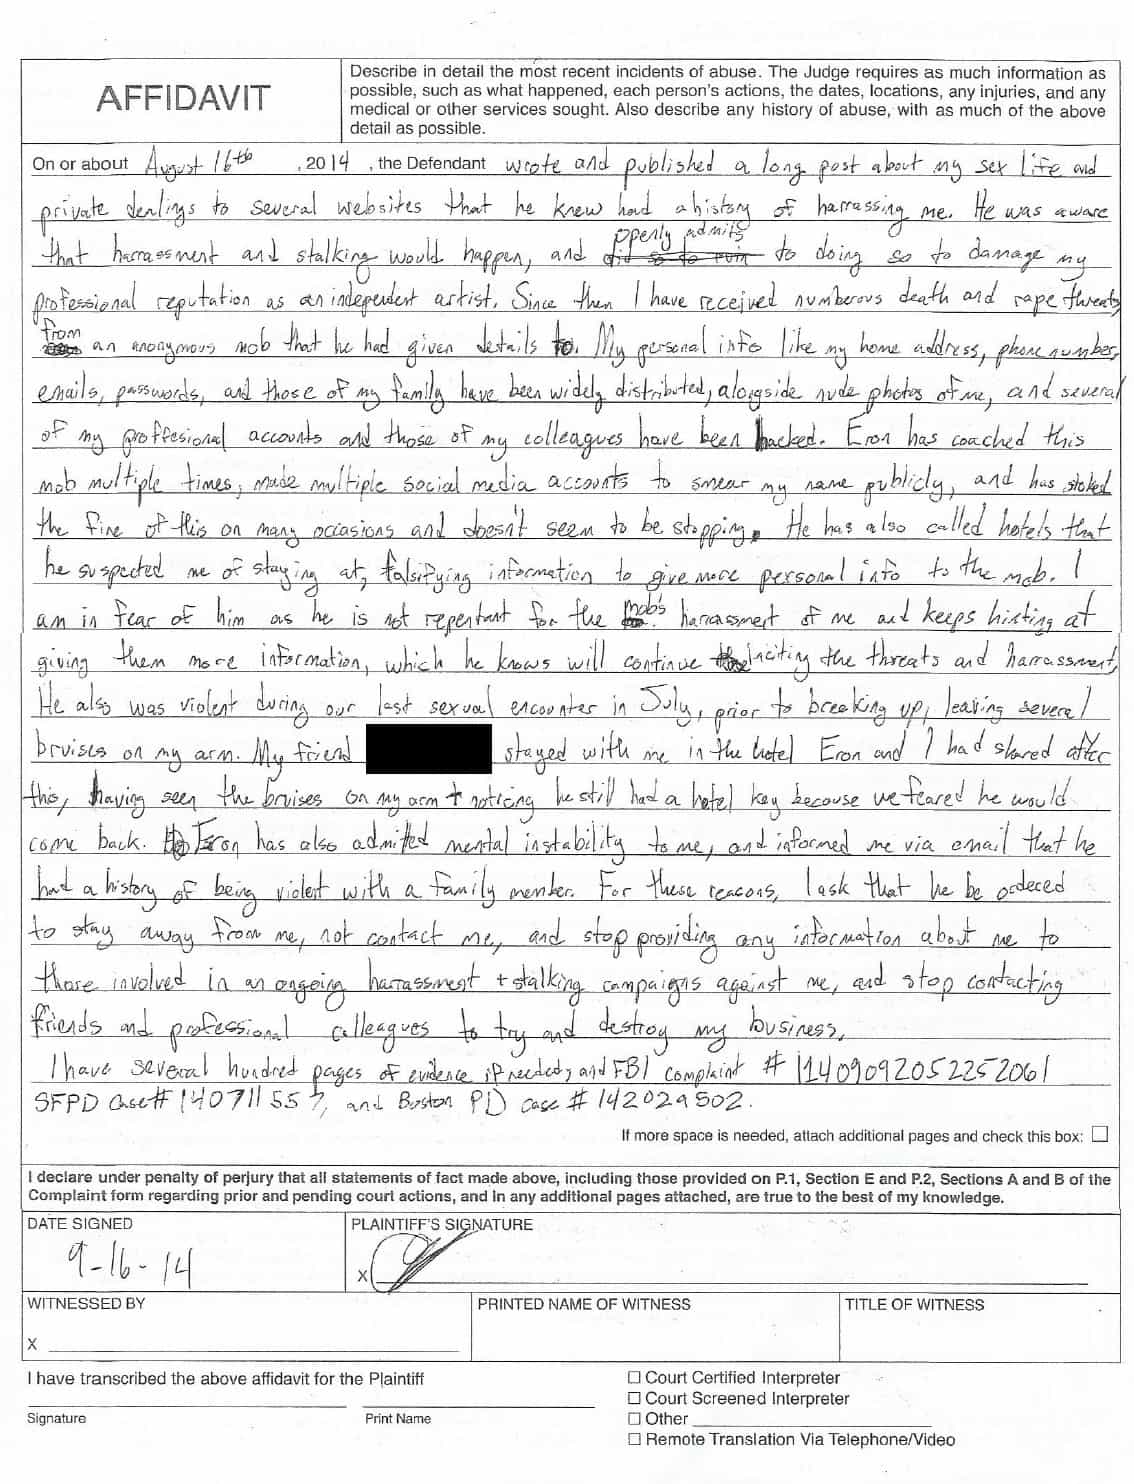 AFFIDAVIT
Describe in detail the most recent incidents of abuse. The Judge requires as much information as
possible, such as what happened, each person's actions, the dates, locations, any injuries, and any
medical or other services sought. Also describe any history of abuse, with as much of the above
detail as possible.
On or about August 16th, 2014, the Defendant wrote and published a long post about my sex life and
private dealings to several websites that he knew had a history of harrassing me. He was aware
that harrassment and stalking would happen, and openly admits to doing so to damage my
professional reputation as an independent artist. Since then I have received numberous death and rape threats
from an anonymous mob that he had given details to. My personal info like my home address, phone number,
emails, passwords, and those of my family have been widely distributed, alongside nude photos of me, and several
of my proffesional accounts and those of my colleagues have been hacked. Eron has coached this
mob multiple times, made multiple social media accounts to smear my name publicly, and has stoked
the fire of this on many occasions and doesn't seem to be stopping. He has also called hotels that
he suspected me of staying at, falsifying information to give more personal info to the mob. I
am in fear of him as he is not repentant for the mob's harrassment of me and keeps hinting at
giving them more information, which he knows will continue inciting the threats and harrassment.
He also was violent during our last sexual encounter in July, prior to breaking up, leaving several
bruises on my arm. My friend stayed with me in the hotel Eron and I had shared after
this, having seen the bruises on my arm + noticing he still had a hotel key because we feared he would
come back. Eron has also admitted mental instability to me, and informed me via email that he
had a history of being violent with a family member. For these reasons, I ask that he be ordered
to stay away from me, not contact me, and stop providing any information about me to
those involved in an ongoing harrassment + stalking campaigns against me, and stop contacting
friends and professional colleagues to try and destroy my business.
I have several hundred pages of evidence if needed, and FBI complaint # I1409092052252061
SFPD case# 140711557, and Boston PD case # 142029502.
If more space is needed, attach additional pages and check this box: ☐
I declare under penalty of perjury that all statements of fact made above, including those provided on P.1, Section E and P.2, Sections A and B of the
Complaint form regarding prior and pending court actions, and in any additional pages attached, are true to the best of my knowledge.
DATE SIGNED
9-16-14
PLAINTIFF'S SIGNATURE
X
WITNESSED BY
X
PRINTED NAME OF WITNESS
TITLE OF WITNESS
I have transcribed the above affidavit for the Plaintiff
Signature
Print Name
☐ Court Certified Interpreter
☐ Court Screened Interpreter
☐ Other
☐ Remote Translation Via Telephone/Video